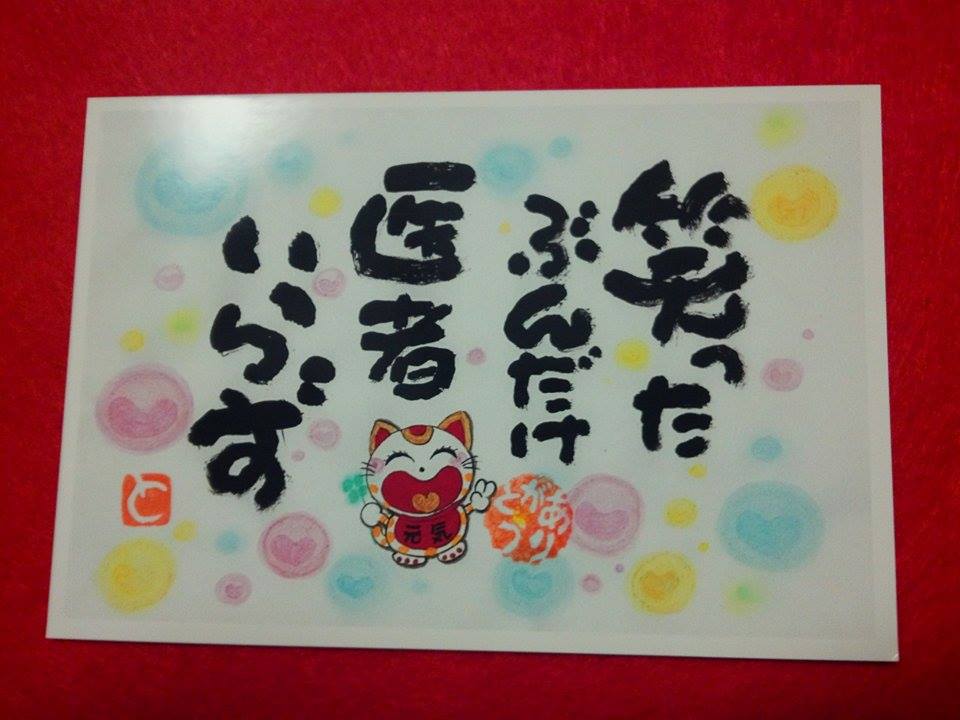 笑った
ぶんだけ
医者
いらず
元気
ありがとう
と